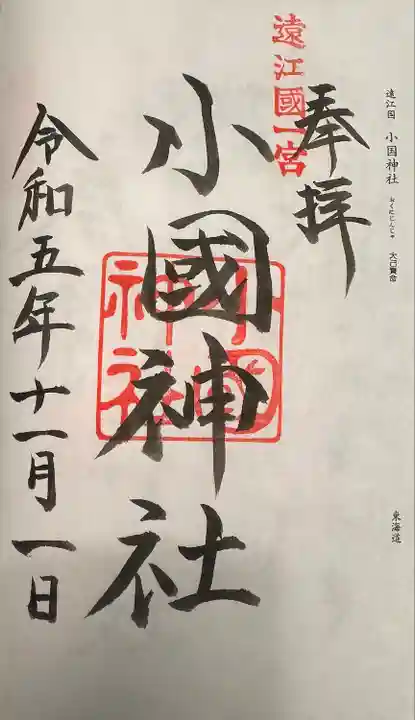 遠江国 小国神社 おくにじんじゃ 大己貴命
東海道
遠江國一宮
奉拝
小國神社
小國神社
令和五年十一月一日